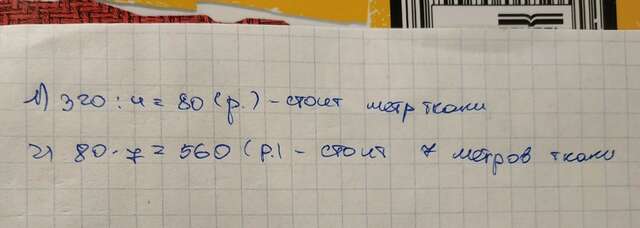 1) 320 : 4 = 80 (р.) - стоит метр ткани
2) 80 · 7 = 560 (р.) - стоит 7 метров ткани